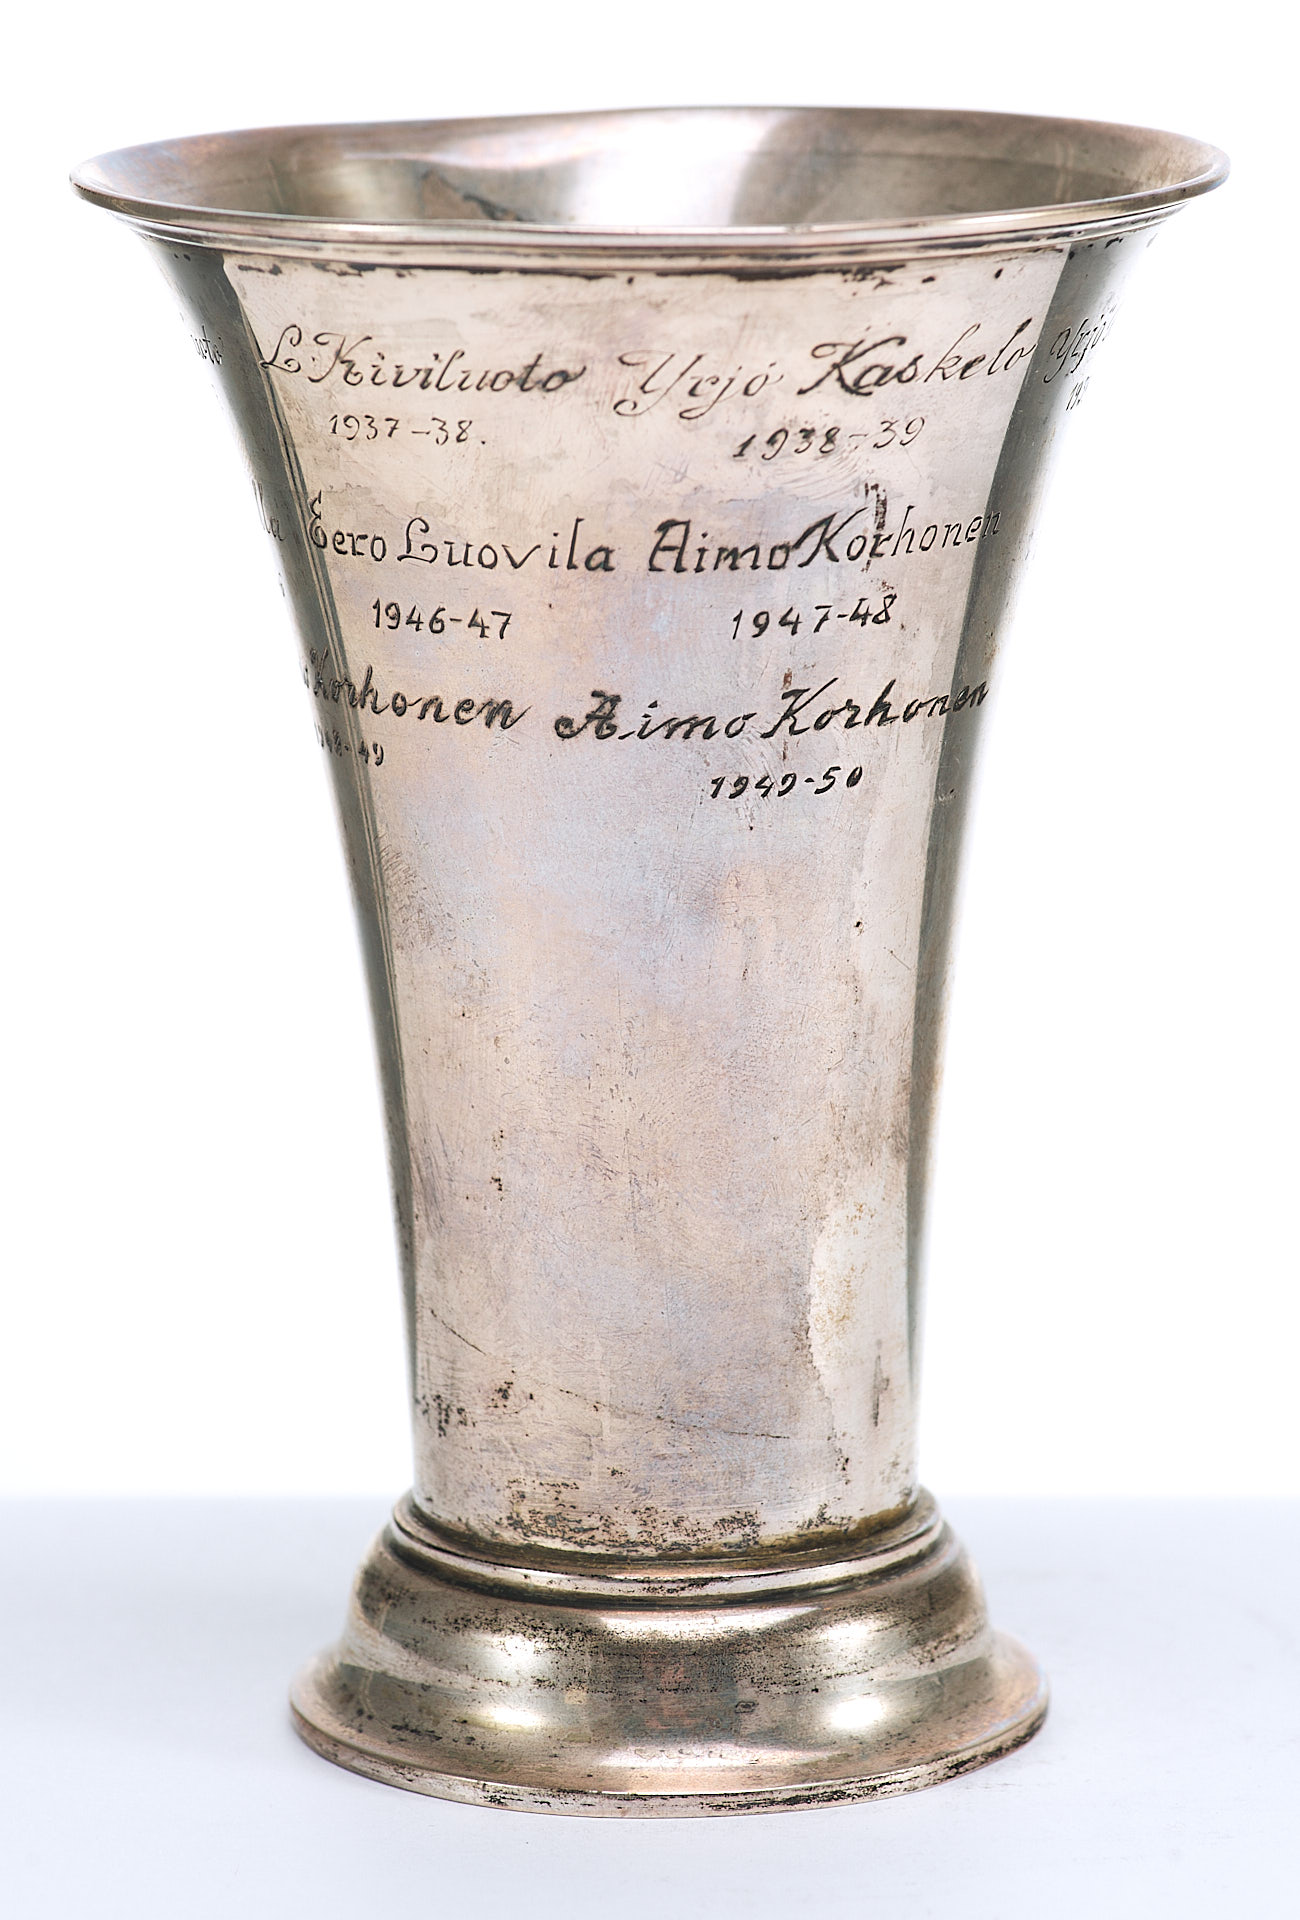 L. Kiviluoto Yrjö Kaskelo Yrjö
1937-38. 1938-39
Eero Luovila Aimo Korhonen
1946-47 1947-48
Korhonen Aimo Korhonen
1948-49 1949-50